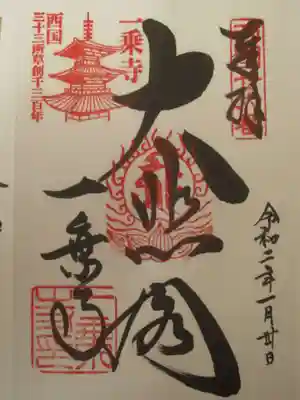 奉拝
令和二年一月廿日
大悲閣
一乗寺
一乗寺
西国
三十三所草創千三百年